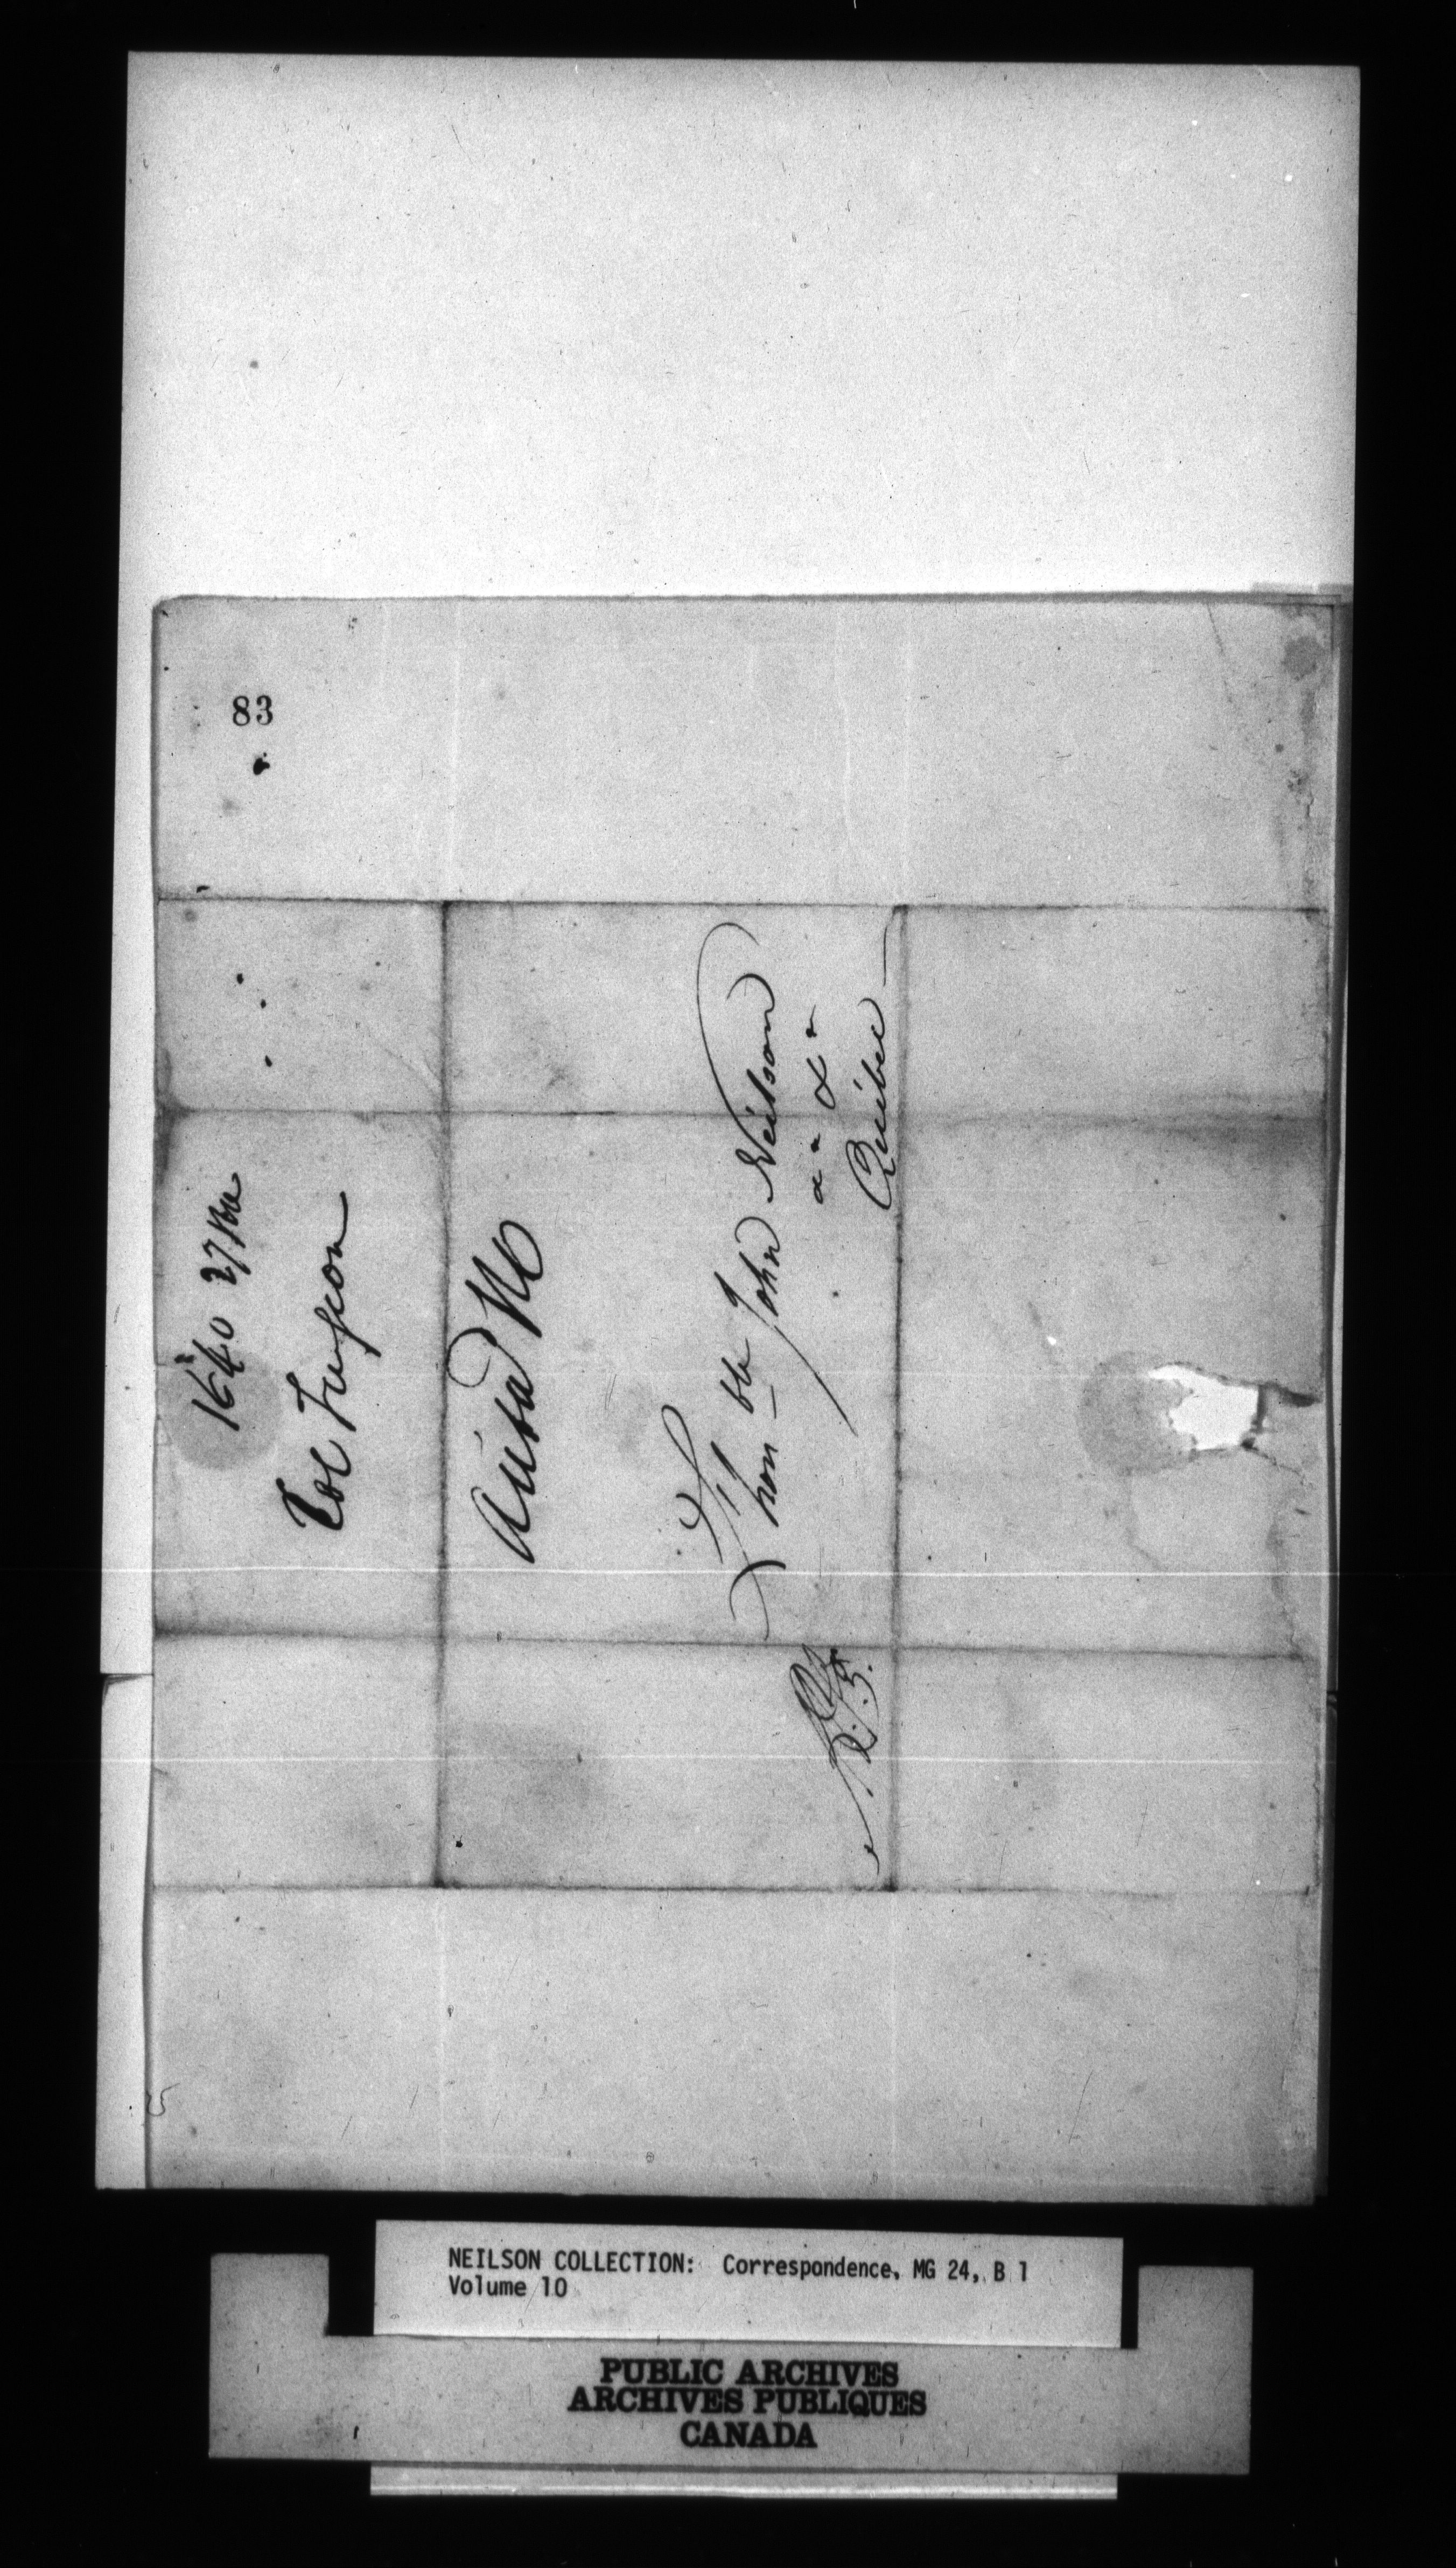 83
1640 27
Col Turgeon
L'
hon_ble John Neilson
& " & "
Québec —
NEILSON COLLECTION: Correspondence, MG 24, B 1
Volume 10
PUBLIC ARCHIVES
ARCHIVES PUBLIQUES
CANADA